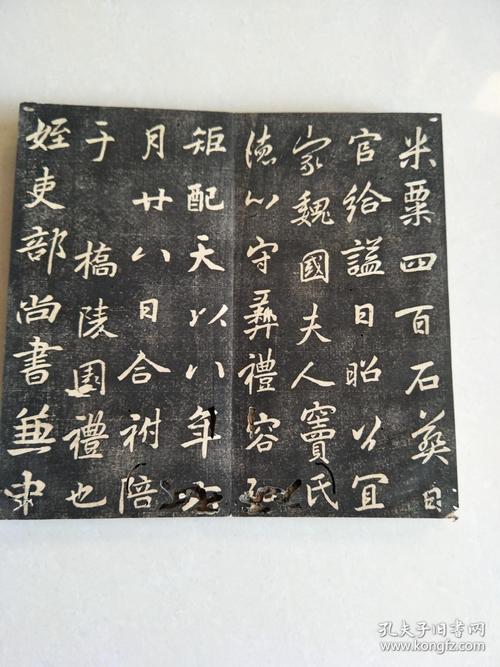 米粟四百石葬日
官給謚曰昭公宜
家魏國夫人竇氏
德心守彝禮容
矩配天以八年
月廿八日合祔陪
于橋陵園禮也
姪吏部尚書兼中
孔夫子旧书网
www.kongfz.com